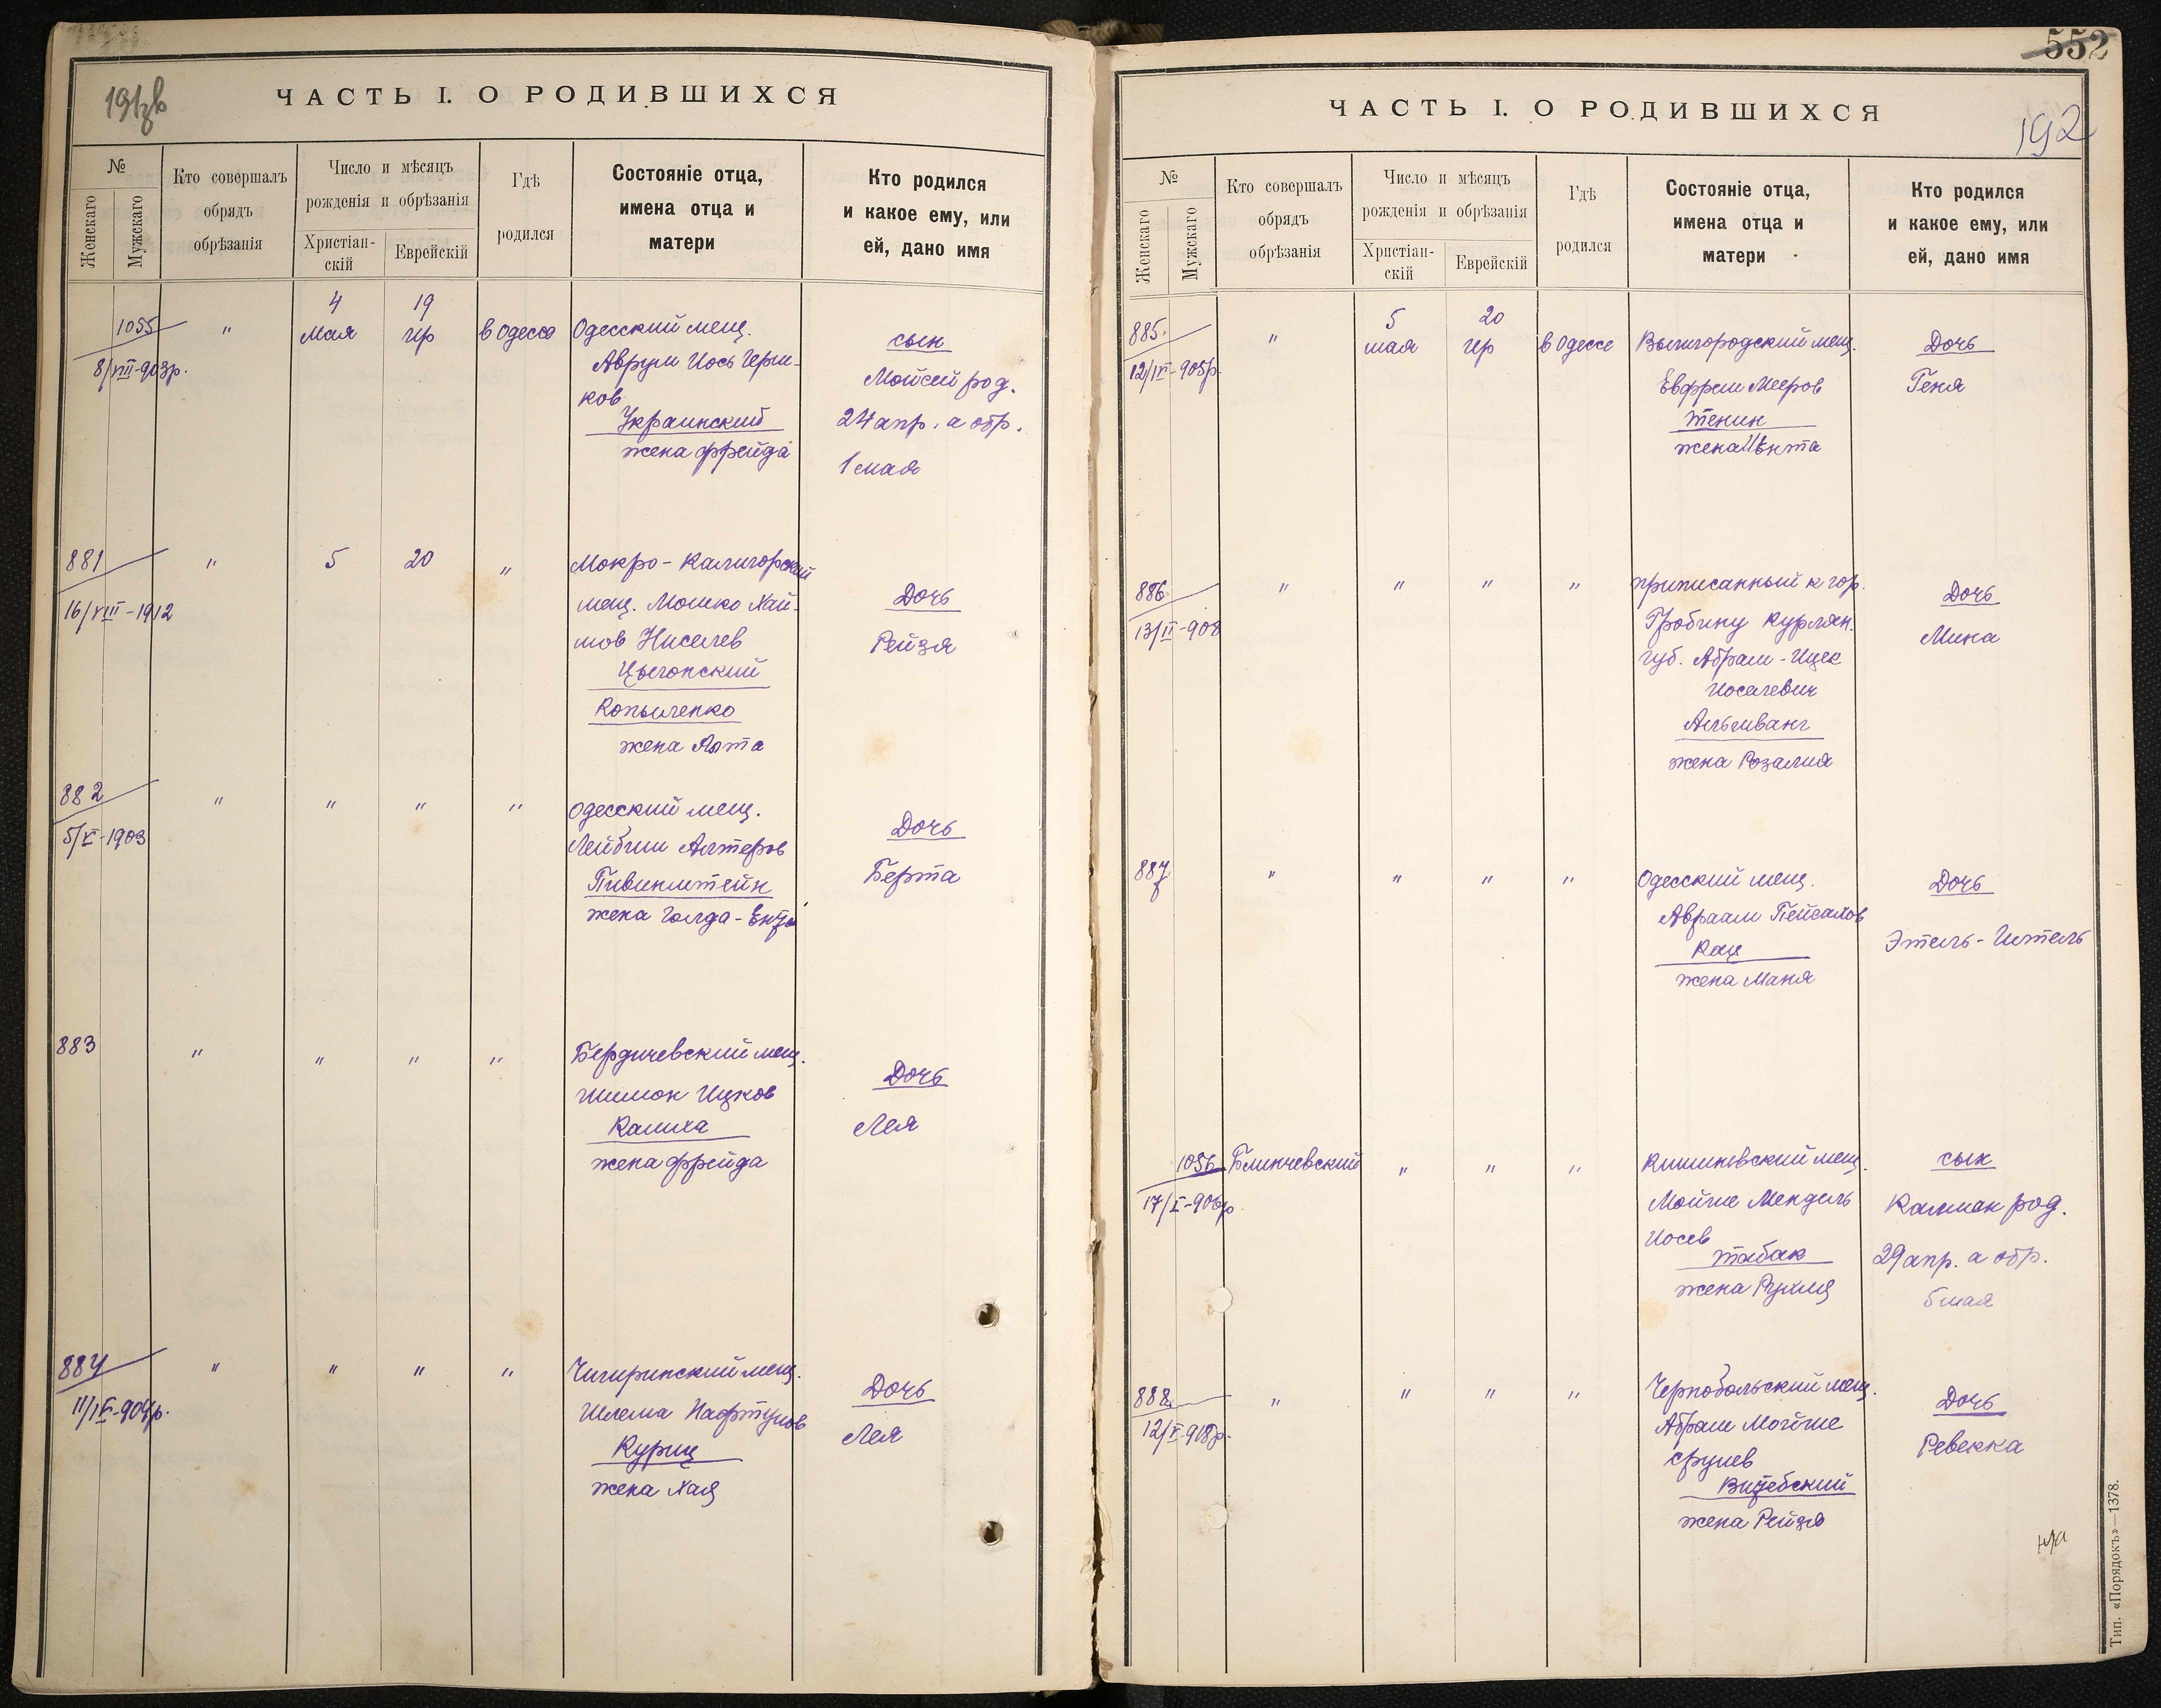 191 об
ЧАСТЬ I. О РОДИВШИХСЯ
№
Женскаго
Мужскаго
Кто совершалъ
обрядъ
обрѣзанія
Число и мѣсяцъ
рожденія и обрѣзанія
Христіан-
скій
Еврейскій
Гдѣ
родился
Состояніе отца,
имена отца и
матери
Кто родился
и какое ему, или
ей, дано имя
1055
8/VIII-903р.
"
4
мая
19
Ир
в Одессе
Одесский мещ.
Аврум Иось Герш-
ков
Украинский
жена Фрейда
сын
Мойсей род.
24 апр. а обр.
1 мая
881
16/VIII-1912
"
5
20
"
Мокро-Калигорский
мещ. Мошко Хаи-
мов Ниселев
Цыгонский
Копыленко
жена
Дочь
Рейзя
882
5/V-1903
"
"
"
"
Одесский мещ.
Лейбиш Алтеров
Пивинштейн
жена Голда-Ента
Дочь
Берта
883
"
"
"
"
Бердичевский мещ.
Шимон Ицков
Камиха
жена Фрейда
Дочь
Лея
884
11/IV-904р.
"
"
"
"
Чигиринский мещ.
Шлема Нафтулов
Куриц
жена Хая
Дочь
Лея
552
192
ЧАСТЬ I. О РОДИВШИХСЯ
№
Женскаго
Мужскаго
Кто совершалъ
обрядъ
обрѣзанія
Число и мѣсяцъ
рожденія и обрѣзанія
Христіан-
скій
Еврейскій
Гдѣ
родился
Состояніе отца,
имена отца и
матери
Кто родился
и какое ему, или
ей, дано имя
885
12/IV-905р.
"
5
мая
20
Ир
в Одессе
Вышгородский мещ.
Евфрем Мееров
Тенин
жена
Дочь
Геня
886
13/II-908
"
"
"
"
приписанный к гор.
Гробину Курлян.
губ. Абрам-Ицек
Иоселевич
Альшванг
жена Розалия
Дочь
Мина
887
"
"
"
"
Одесский мещ.
Авраам Пейсахов
Кац
жена Маня
Дочь
Этель-Ительь
1056
17/I-906р.
Блинчевский
"
"
"
Кишиневский мещ.
Мойше Мендель
Иосев
Табак
жена Рухля
сын
Калман род.
29 апр. а обр.
5 мая
888
12/V-918р.
"
"
"
"
Чернобольский мещ.
Абрам Мойше
Срулев
Витебский
жена Рейзя
Дочь
Ревекка
Тип. «Порядокъ»—1378.